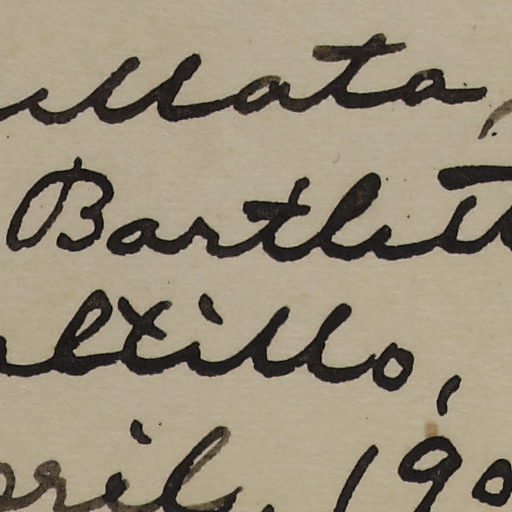 ullata,
Bartlett
altillo,
pril, 190